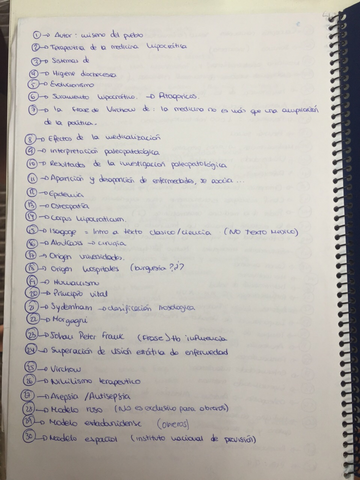 ① → Autor: miseno del pueblo
② → Terapeutica de la medicina hipocratica
③ → Sistemas de
④ → Higiene diocnecesia
⑤ → Evolucionismo
⑥ → Juramento hipocratico. → Pitagoricos
⑦ → la frase de Virchow de: la medicina no es más que una ampliación
de la politica.
⑧ → Efectos de la medicalización
⑨ → Interpretación paleopatológica
⑩ → Resultados de la investigacion paleopatológica
⑪ → Aparicion y desaparicion de enfermedades, se asocia.
⑫ → Epidemia
⑬ → Osteopatia
⑭ → Corpus hipocraticum
⑮ → Isagoge = Intro a texto clasico/ciencia (NO TEXTO MEDICO)
⑯ → Abulcasis → cirugia
⑰ → Origen universidades.
⑱ → Origen hospitales (burguesia ?¿?
⑲ → Humanismo
⑳ → Principio vital
㉑ → Sydenham → clasificación nosologica
㉒ → Morgagni
㉓ → Johan Peter Frank (FRASE) →
㉔ → Superación de visión estática de enfermedad
㉕ → Virchow
㉖ → Nihilismo terapeutico
㉗ → Asepsia /Antisepsia
㉘ → Modelo ruso (NO es exclusivo para obreros)
㉙ → Modelo estadounidense (obreros)
㉚ → Modelo español (instituto nacional de prevision)